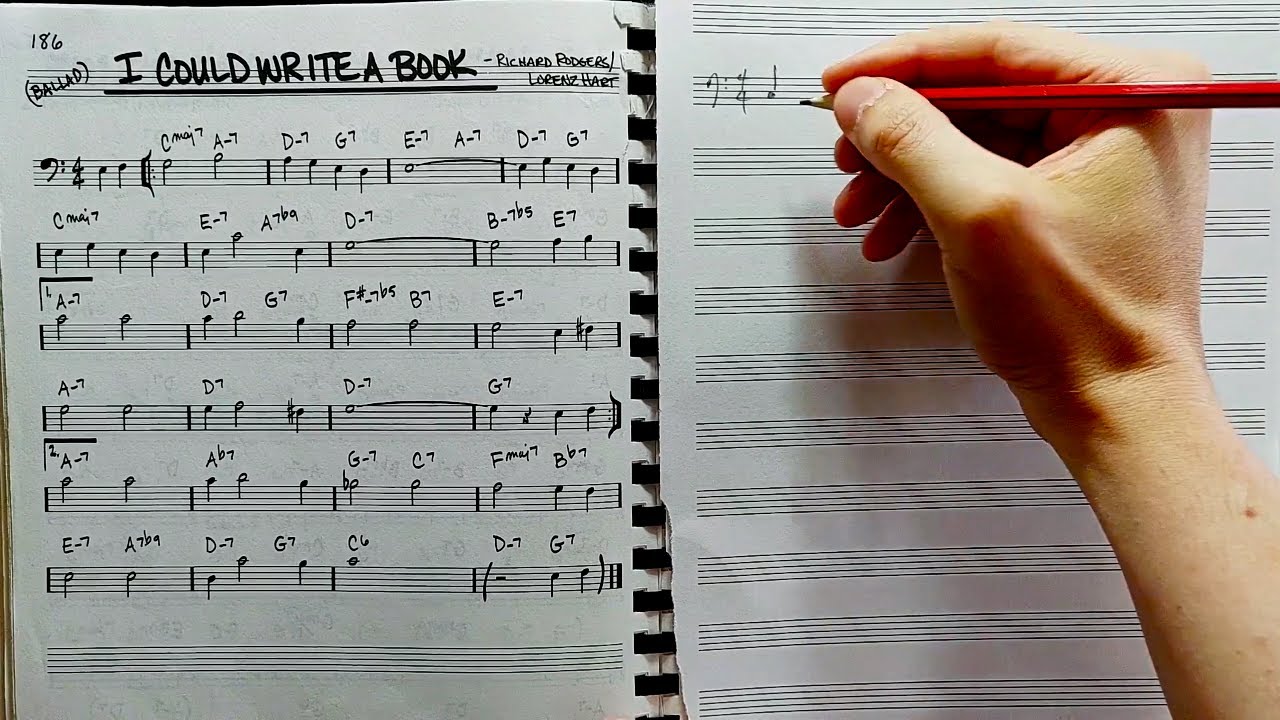 186
(BALLAD) I COULD WRITE A BOOK - RICHARD RODGERS/
LORENZ HART
4/4 Cmaj7 A-7 D-7 G7 E-7 A-7 D-7 G7
Cmaj7 E-7 A7b9 D-7 B-7b5 E7
1. A-7 D-7 G7 F#-7b5 B7 E-7
A-7 D7 D-7 G7
2. A-7 Ab7 G-7 C7 Fmaj7 Bb7
E-7 A7b9 D-7 G7 C6 D-7 G7
4/4